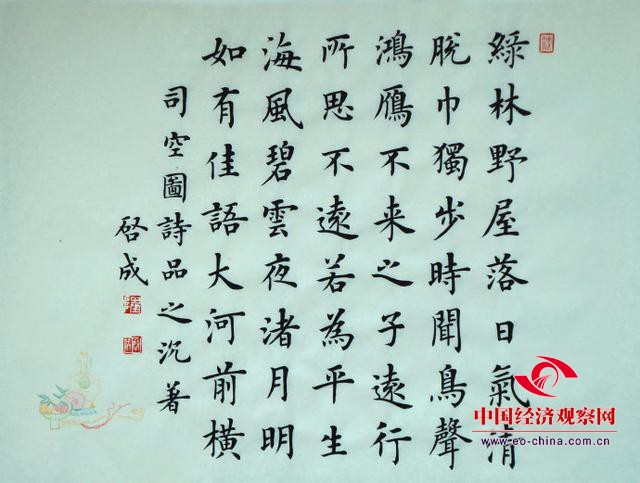 綠林野屋落日氣清
脫巾獨步時聞鳥聲
鴻鴈不来之子遠行
所思不遠若為平生
海風碧雲夜渚月明
如有佳語大河前橫
司空圖詩品之沉著
啓成
中国经济观察网
www.eo-china.com.cn